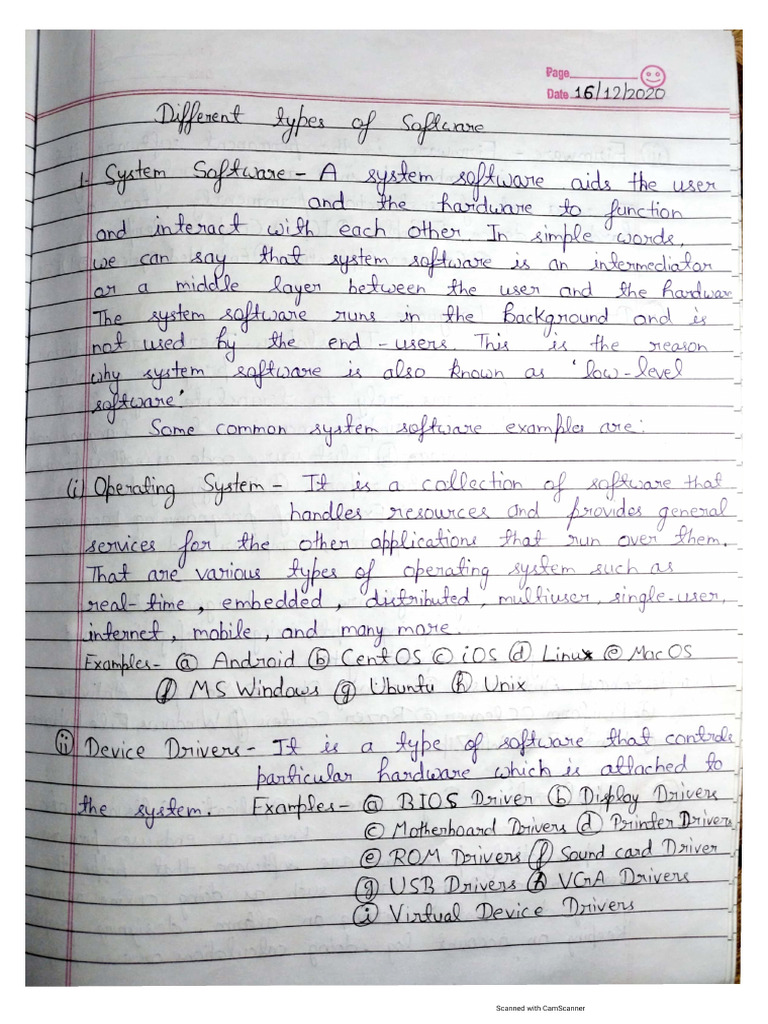 Page
Date 16/12/2020
Different types of Software
1. System Software - A system software aids the user
and the hardware to function
and interact with each other. In simple words,
we can say that system software is an intermediator
or a middle layer between the user and the hardwar
The system software runs in the background and is
not used by the end-users. This is the reason
why system software is also known as 'low-level
software'.
Some common system software examples are:
(i) Operating System - It is a collection of software that
handles resources and provides general
services for the other applications that run over them.
That are various types of operating system such as
real-time, embedded, distributed, multiuser, single-user,
internet, mobile, and many more.
Examples- ⓐ Android ⓑ CentOS ⓒ iOS ⓓ Linux ⓔ MacOS
ⓕ MS Windows ⓖ Ubuntu ⓗ Unix
(ii) Device Drivers - It is a type of software that controls
particular hardware which is attached to
the system. Examples- ⓐ BIOS Driver ⓑ Display Drivers
ⓒ Motherboard Drivers ⓓ Printer Drivers
ⓔ ROM Drivers ⓕ Sound card Driver
ⓖ USB Drivers ⓗ VGA Drivers
ⓘ Virtual Device Drivers
Scanned with CamScanner